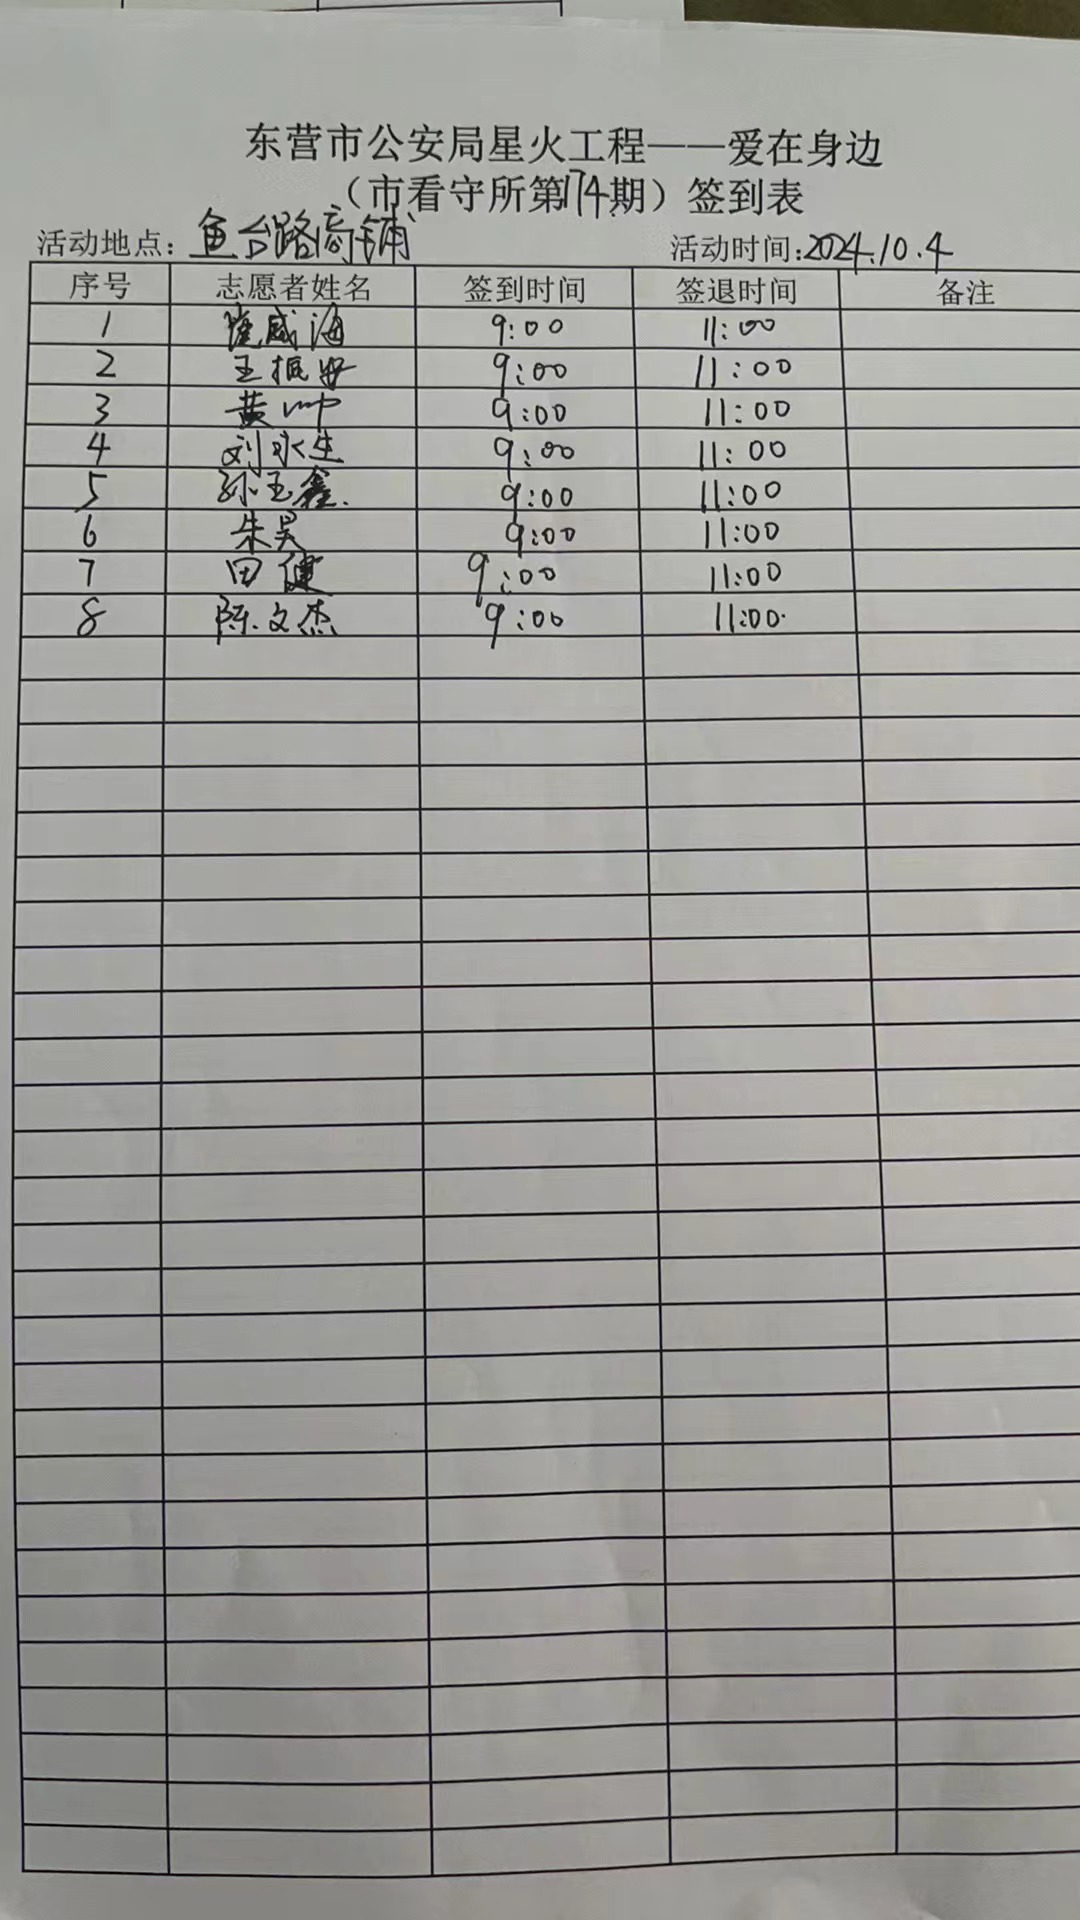 东营市公安局星火工程——爱在身边
（市看守所第174期）签到表
活动地点：鱼台路商铺 活动时间:2024.10.4
序号 志愿者姓名 签到时间 签退时间 备注
1 隆威海 9:00 11:00
2 王振 9:00 11:00
3 黄帅 9:00 11:00
4 刘永生 9:00 11:00
5 孙玉鑫. 9:00 11:00
6 朱昊 9:00 11:00
7 田健 9:00 11:00
8 陈文杰 9:00 11:00.